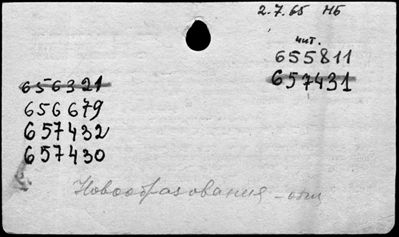 2.7.65 МБ
чит.
655811
657431
656321
656679
657432
657430
Новообразования -